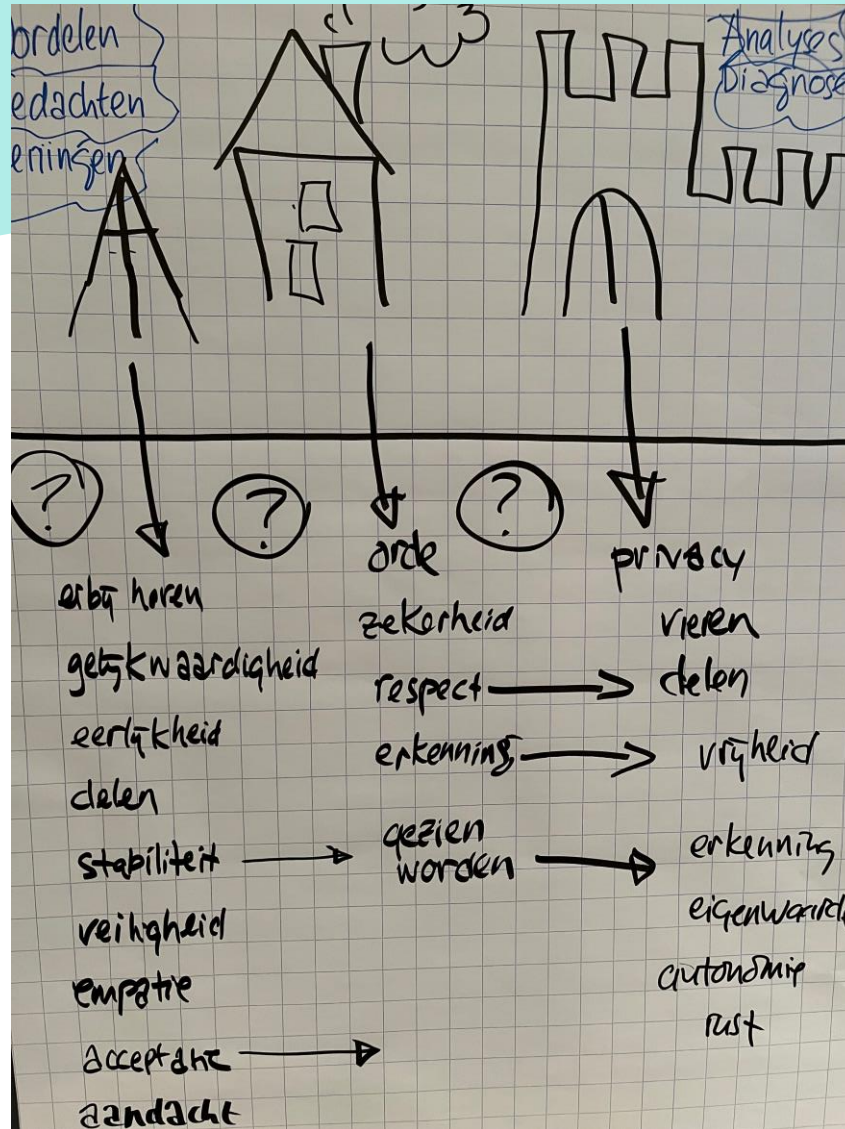 ordelen
edachten
eningen
Analyses
Diagnose
?
?
?
erbij horen
gelijkwaardigheid
eerlijkheid
delen
stabiliteit
veiligheid
empatie
acceptant
aandacht
orde
zekerheid
respect
erkenning
gezien
worden
privacy
vieren
delen
vrijheid
erkenning
eigenwaard
autonomie
rust